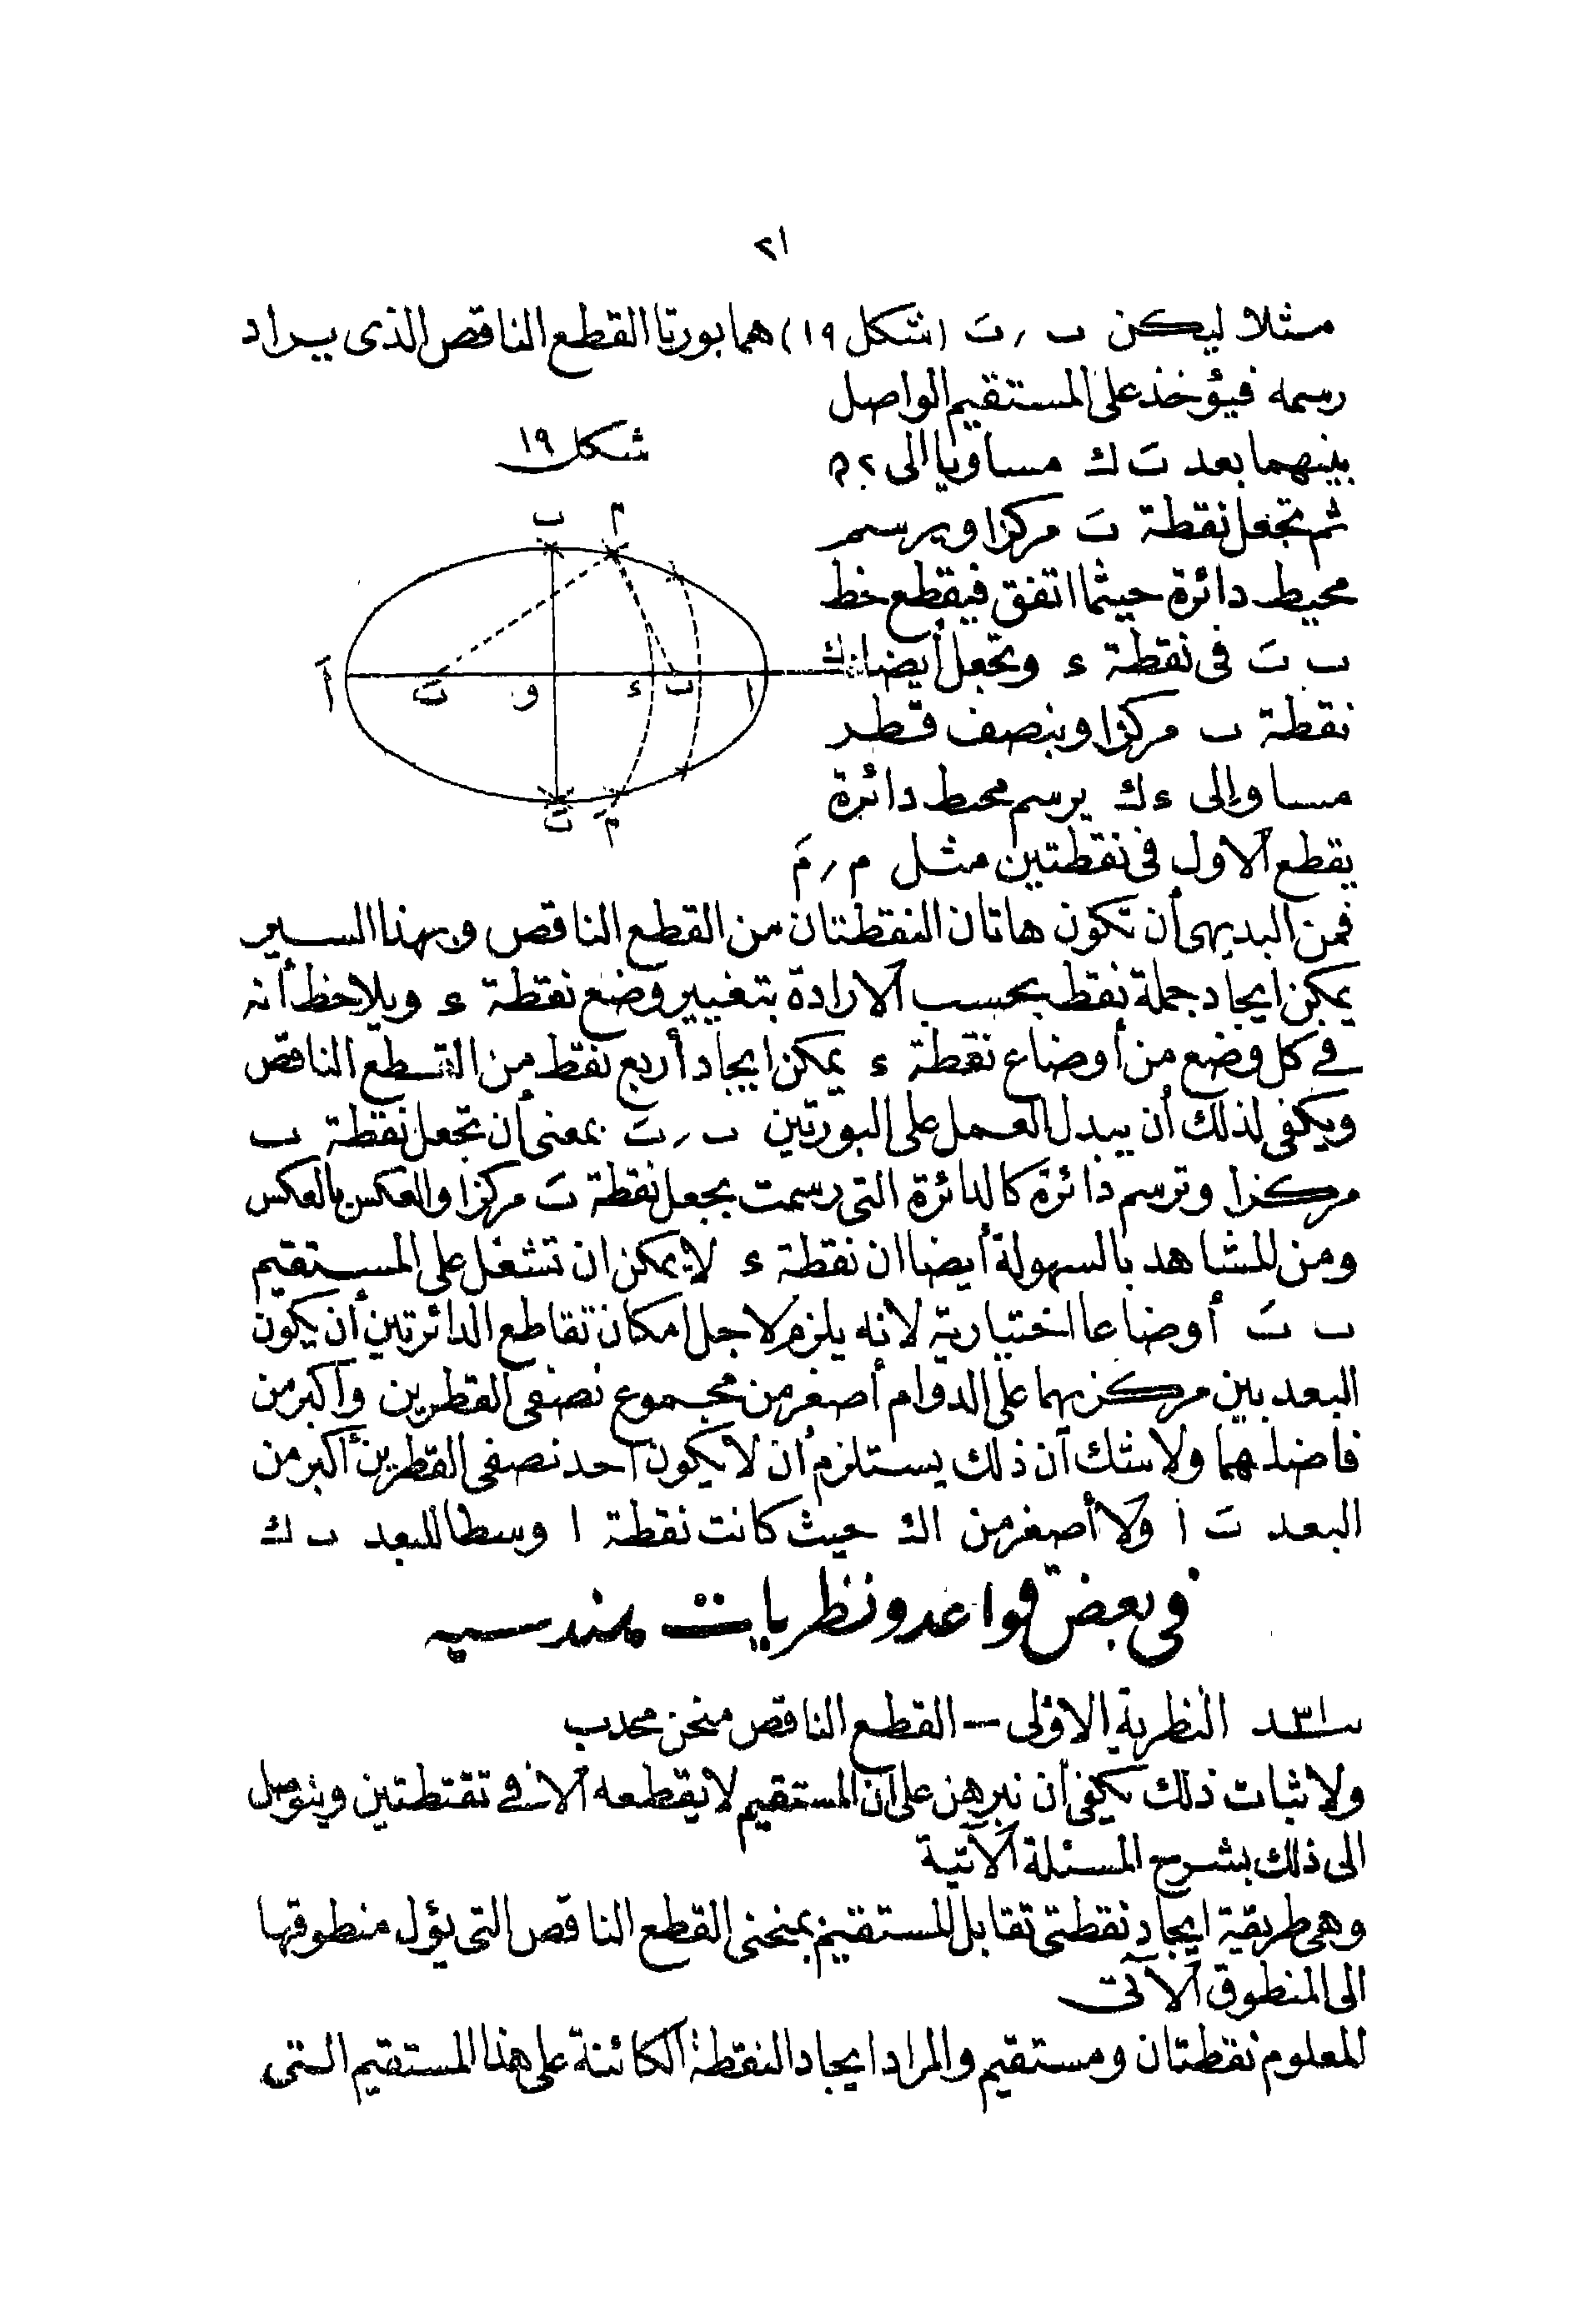 ٢١
مثلا ليكن ب ر بَ (شكل ١٩) هما بورتا القطع الناقص الذى يراد
رسمه فيؤخذ على المستقيم الواصل
بينهما بعد بَ ك مساويا الى ٢ح
ثم تجعل نقطة بَ مركزا ويرسم
محيط دائرة حيثما اتفق فيقطع خط
ب بَ فى نقطة ء وتجعل أيضا
نقطة ب مركزا وبنصف قطر
مساو إلى ءك يرسم محيط دائرة
يقطع الاول فى نقطتين مثل م ر مَ
شكل ١٩
ب م
أَ بَ و ء ب ا ك
بَ مَ
فمن البديهى أن تكون هاتان النقطتان من القطع الناقص وبهذا السير
يمكن ايجاد جملة نقط بحسب الارادة بتغيير وضع نقطة ء ويلاحظ أنه
فى كل وضع من أوضاع نقطة ء يمكن ايجاد أربع نقط من القطع الناقص
ويكفى لذلك أن يبدل العمل على البورتين ب ر بَ بمعنى أن تجعل نقطة ب
مركزا وترسم دائرة كالدائرة التى رسمت بجعل نقطة بَ مركزا والعكس بالعكس
ومن المشاهد بالسهولة أيضا ان نقطة ء لايمكن ان تشغل على المستقيم
ب بَ أوضاعا اختيارية لانه يلزم لاجل امكان تقاطع الدائرتين أن يكون
البعد بين مركزيهما على الدوام أصغر من مجموع نصفى القطرين وأكبر من
فاضلهما ولاشك أن ذلك يستلزم أن لا يكون احد نصفى القطرين أكبر من
البعد بَ ا ولا أصغر من اك حيث كانت نقطة ا وسطا للبعد ب ك
فى بعض قواعد ونظريات هندسيه
سـ٣١ـد النظرية الاولى — القطع الناقص منحن محدب
ولاثبات ذلك يكفى أن نبرهن على أن المستقيم لايقطعه الا فى نقتطتين ويتوصل
الى ذلك بشرح المسئلة الآتية
وهى طريقة ايجاد نقطتى تقابل المستقيم بمنحنى القطع الناقص التى يؤل منطوقها
الى المنطوق الآتى
المعلوم نقطتان ومستقيم والمراد ايجاد النقطة الكائنة على هذا المستقيم التى